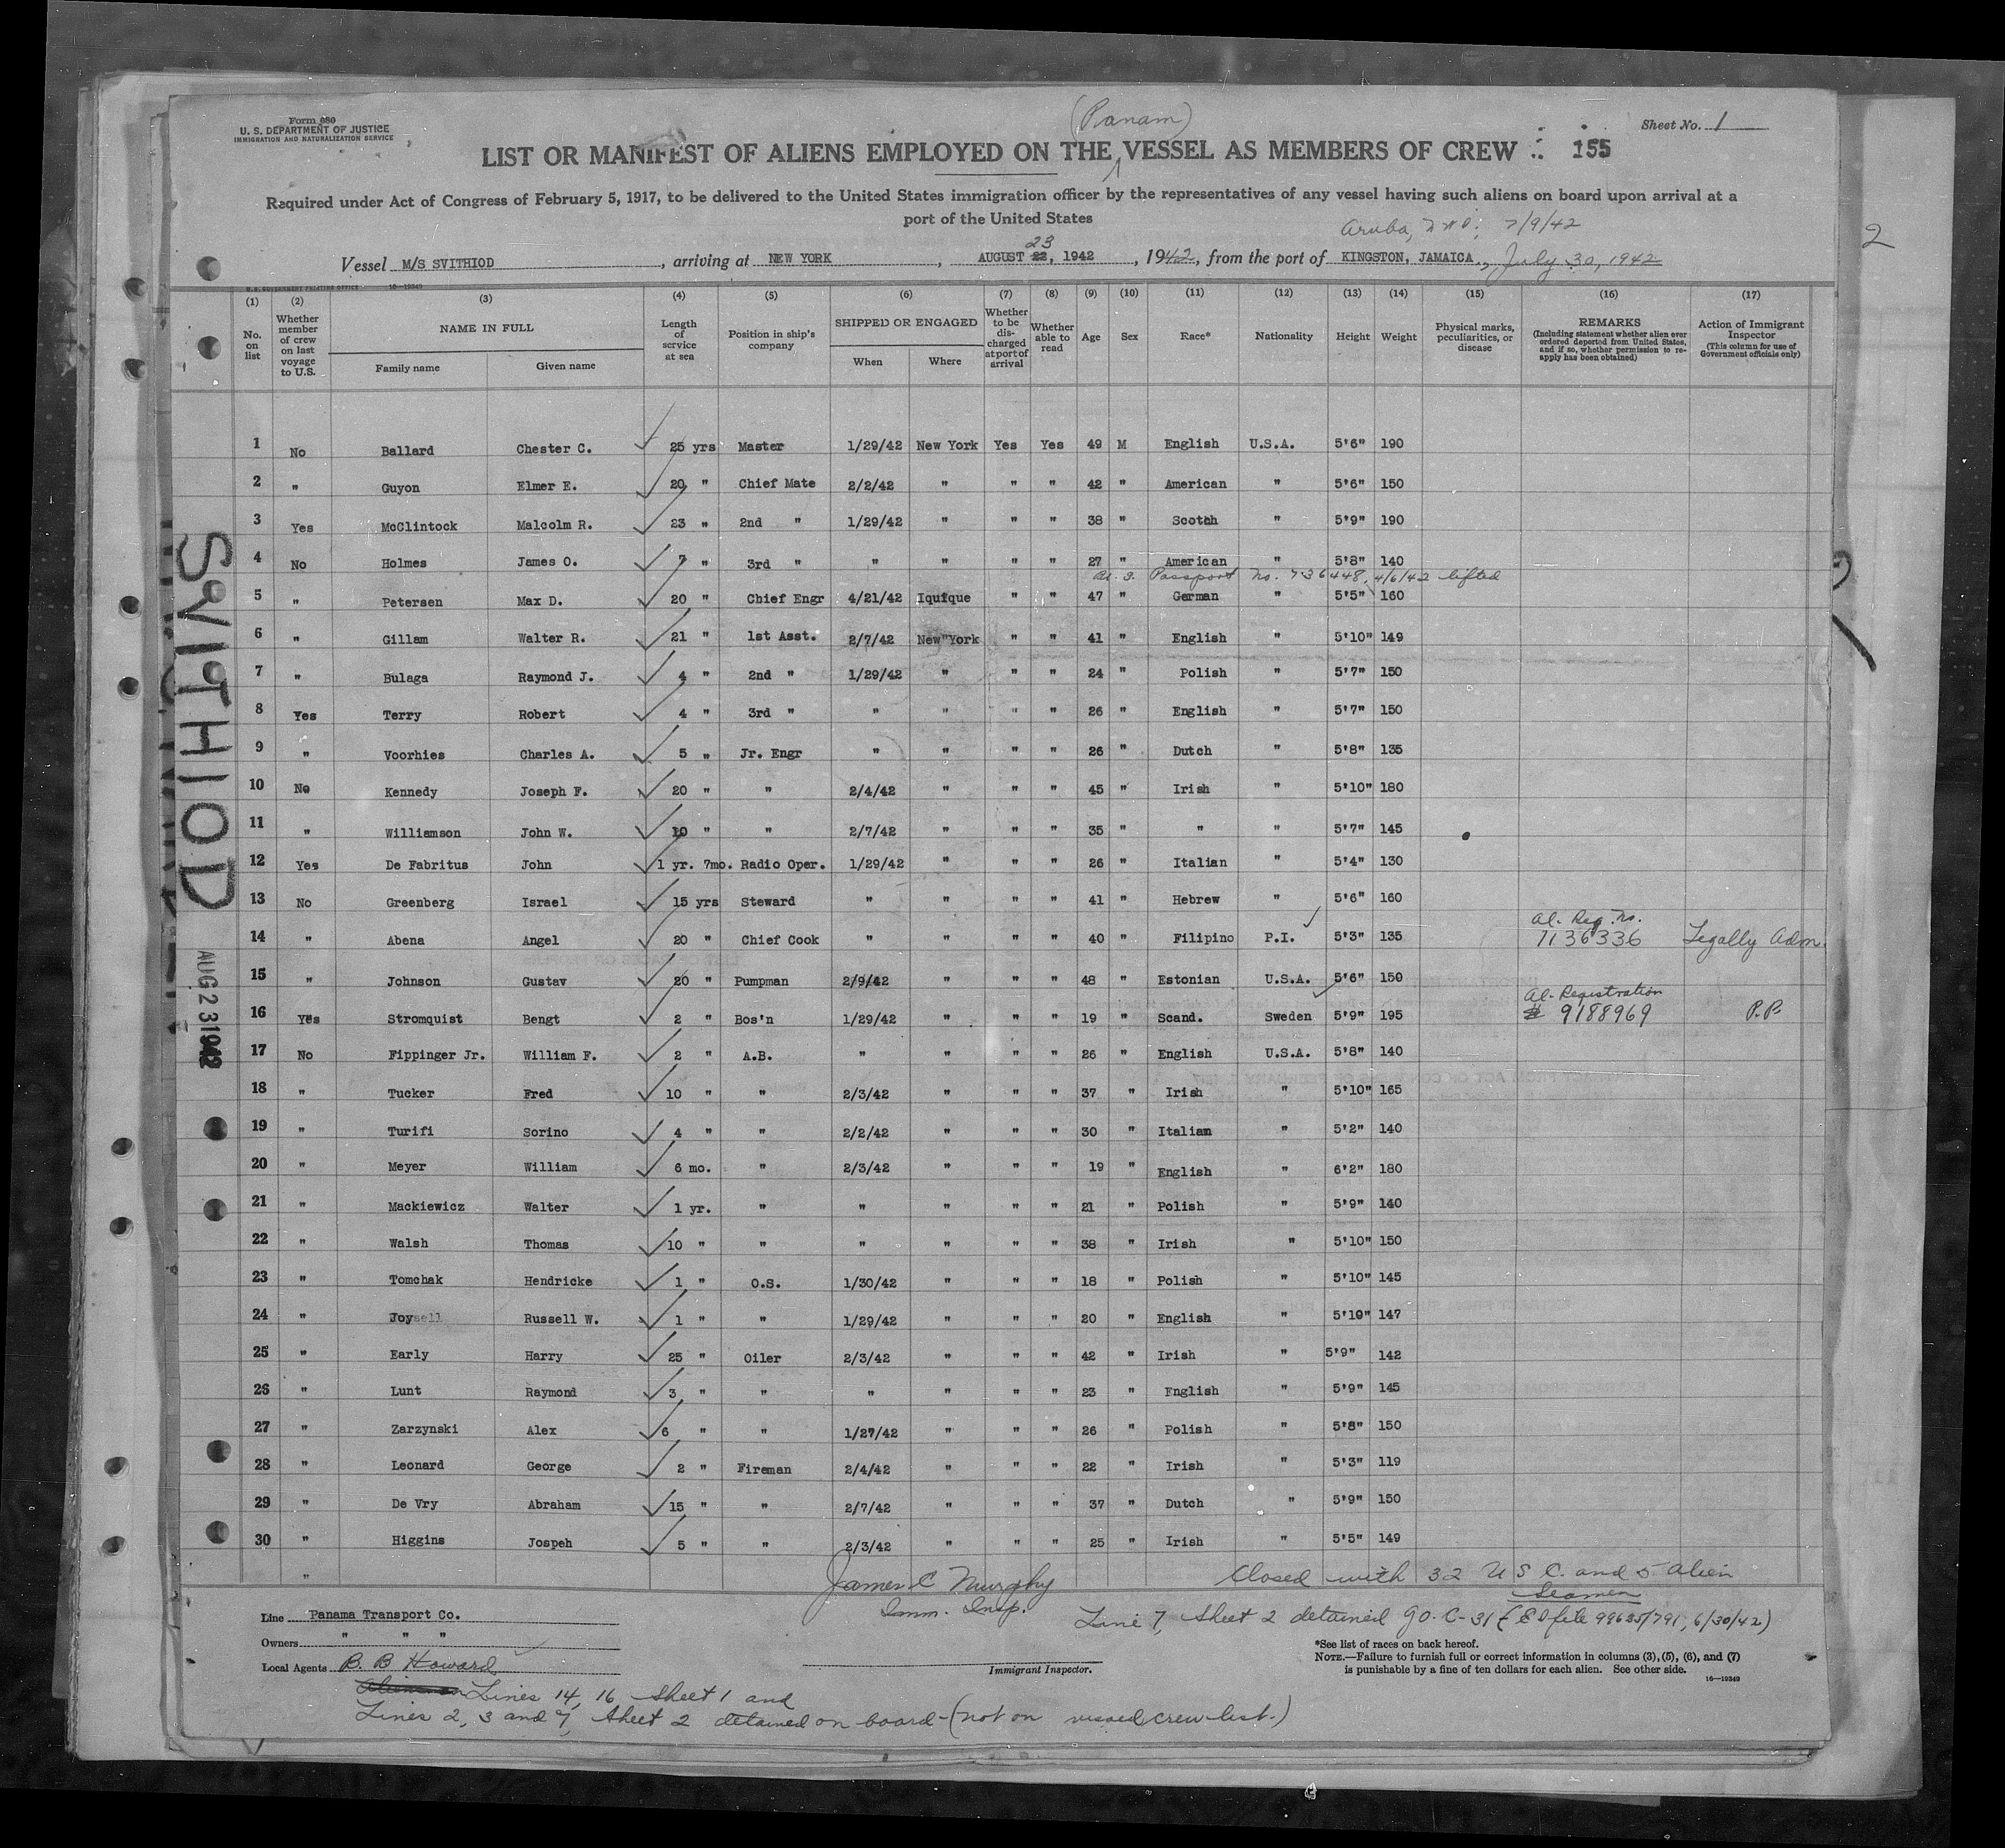 Form 680
U. S. DEPARTMENT OF JUSTICE
IMMIGRATION AND NATURALIZATION SERVICE
(Panam)
Sheet No. 1
LIST OR MANIFEST OF ALIENS EMPLOYED ON THE VESSEL AS MEMBERS OF CREW 155
Required under Act of Congress of February 5, 1917, to be delivered to the United States immigration officer by the representatives of any vessel having such aliens on board upon arrival at a
port of the United States
Aruba, 7/9/42
23
Vessel M/S SVITHIOD, arriving at NEW YORK, AUGUST 22, 1942, 1942, from the port of KINGSTON, JAMAICA., July 30, 1942
U. S. GOVERNMENT PRINTING OFFICE 16—19349
(1) (2) (3) (4) (5) (6) (7) (8) (9) (10) (11) (12) (13) (14) (15) (16) (17)
No. on list
Whether member of crew on last voyage to U.S.
NAME IN FULL
Family name Given name
Length of service at sea
Position in ship's company
SHIPPED OR ENGAGED
When Where
Whether to be discharged at port of arrival
Whether able to read
Age
Sex
Race*
Nationality
Height
Weight
Physical marks, peculiarities, or disease
REMARKS
(Including statement whether alien ever ordered deported from United States, and if so, whether permission to re-apply has been obtained)
Action of Immigrant Inspector
(This column for use of Government officials only)
1 No Ballard Chester C. 25 yrs Master 1/29/42 New York Yes Yes 49 M English U.S.A. 5'6" 190
2 " Guyon Elmer E. 20 " Chief Mate 2/2/42 " " " 42 " American " 5'6" 150
3 Yes McClintock Malcolm R. 23 " 2nd " 1/29/42 " " " 38 " Scotch " 5'9" 190
4 No Holmes James O. 7 " 3rd " " " " " 27 " American " 5'8" 140
Passport No. 736448, 4/6/42 lifted
5 " Petersen Max D. 20 " Chief Engr 4/21/42 Iquique " " 47 " German " 5'5" 160
6 " Gillam Walter R. 21 " 1st Asst. 2/7/42 New"York " " 41 " English " 5'10" 149
7 " Bulaga Raymond J. 4 " 2nd " 1/29/42 " " " 24 " Polish " 5'7" 150
8 Yes Terry Robert 4 " 3rd " " " " " 26 " English " 5'7" 150
9 " Voorhies Charles A. 5 " Jr. Engr " " " " 26 " Dutch " 5'8" 135
10 No Kennedy Joseph F. 20 " " 2/4/42 " " " 45 " Irish " 5'10" 180
11 " Williamson John W. 10 " " 2/7/42 " " " 35 " " " 5'7" 145
12 Yes De Fabritus John 1 yr. 7mo. Radio Oper. 1/29/42 " " " 26 " Italian " 5'4" 130
13 No Greenberg Israel 15 yrs Steward " " " " 41 " Hebrew " 5'6" 160
Al. Reg. no.
14 " Abena Angel 20 " Chief Cook " " " " 40 " Filipino P.I. 5'3" 135 7136336 Legally Adm.
15 " Johnson Gustav 20 " Pumpman 2/9/42 " " " 48 " Estonian U.S.A. 5'6" 150
Al. Registration
16 Yes Stromquist Bengt 2 " Bos'n 1/29/42 " " " 19 " Scand. Sweden 5'9" 195 # 9188969 P.P.
17 No Fippinger Jr. William F. 2 " A.B. " " " " 26 " English U.S.A. 5'8" 140
18 " Tucker Fred 10 " " 2/3/42 " " " 37 " Irish " 5'10" 165
19 " Turifi Sorino 4 " " 2/2/42 " " " 30 " Italian " 5'2" 140
20 " Meyer William 6 mo. " 2/3/42 " " " 19 " English " 6'2" 180
21 " Mackiewicz Walter 1 yr. " " " " " 21 " Polish " 5'9" 140
22 " Walsh Thomas 10 " " " " " " 38 " Irish " 5'10" 150
23 " Tomchak Hendricke 1 " O.S. 1/30/42 " " " 18 " Polish " 5'10" 145
24 " Joysell Russell W. 1 " " 1/29/42 " " " 20 " English " 5'10" 147
25 " Early Harry 25 " Oiler 2/3/42 " " " 42 " Irish " 5'9" 142
26 " Lunt Raymond 3 " " " " " " 23 " English " 5'9" 145
27 " Zarzynski Alex 6 " " 1/27/42 " " " 26 " Polish " 5'8" 150
28 " Leonard George 2 " Fireman 2/4/42 " " " 22 " Irish " 5'3" 119
29 " De Vry Abraham 15 " " 2/7/42 " " " 37 " Dutch " 5'9" 150
30 " Higgins Jospeh 5 " " 2/3/42 " " " 25 " Irish " 5'5" 149
"
SVITHIOD
AUG 23 1942
2
James C Murphy
Imm. Insp.
Closed with 32 U S C. and 5 Alien
Seamen
Line 7, Sheet 2 detained GO. C-31 (E D file 99635/791, 6/30/42)
Line Panama Transport Co.
Owners " " "
Local Agents B. B Howard
Immigrant Inspector.
*See list of races on back hereof.
NOTE.—Failure to furnish full or correct information in columns (3), (5), (6), and (7)
is punishable by a fine of ten dollars for each alien. See other side.
16—19349
Lines 14, 16 Sheet 1 and
Lines 2, 3 and 7, Sheet 2 detained on board—(not on visaed crew list.)